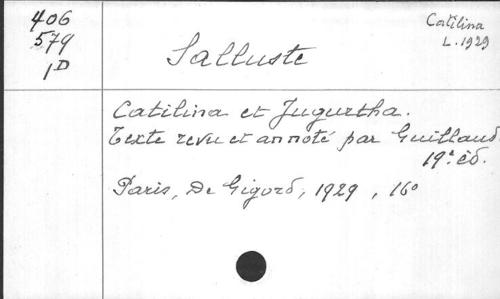 406
579
1D
Salluste
Catilina
L. 1929
Catilina et Jugurtha.
Texte revu et annoté par Guillaud.
19e éd.
Paris, De Gigord, 1929, 16o